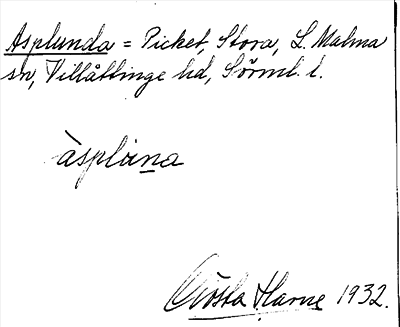 Asplunda = Picket, Stora, L. Malma
sn, Villåttinge hd, Sörml. l.
àsplúna
Gösta Harne 1932.